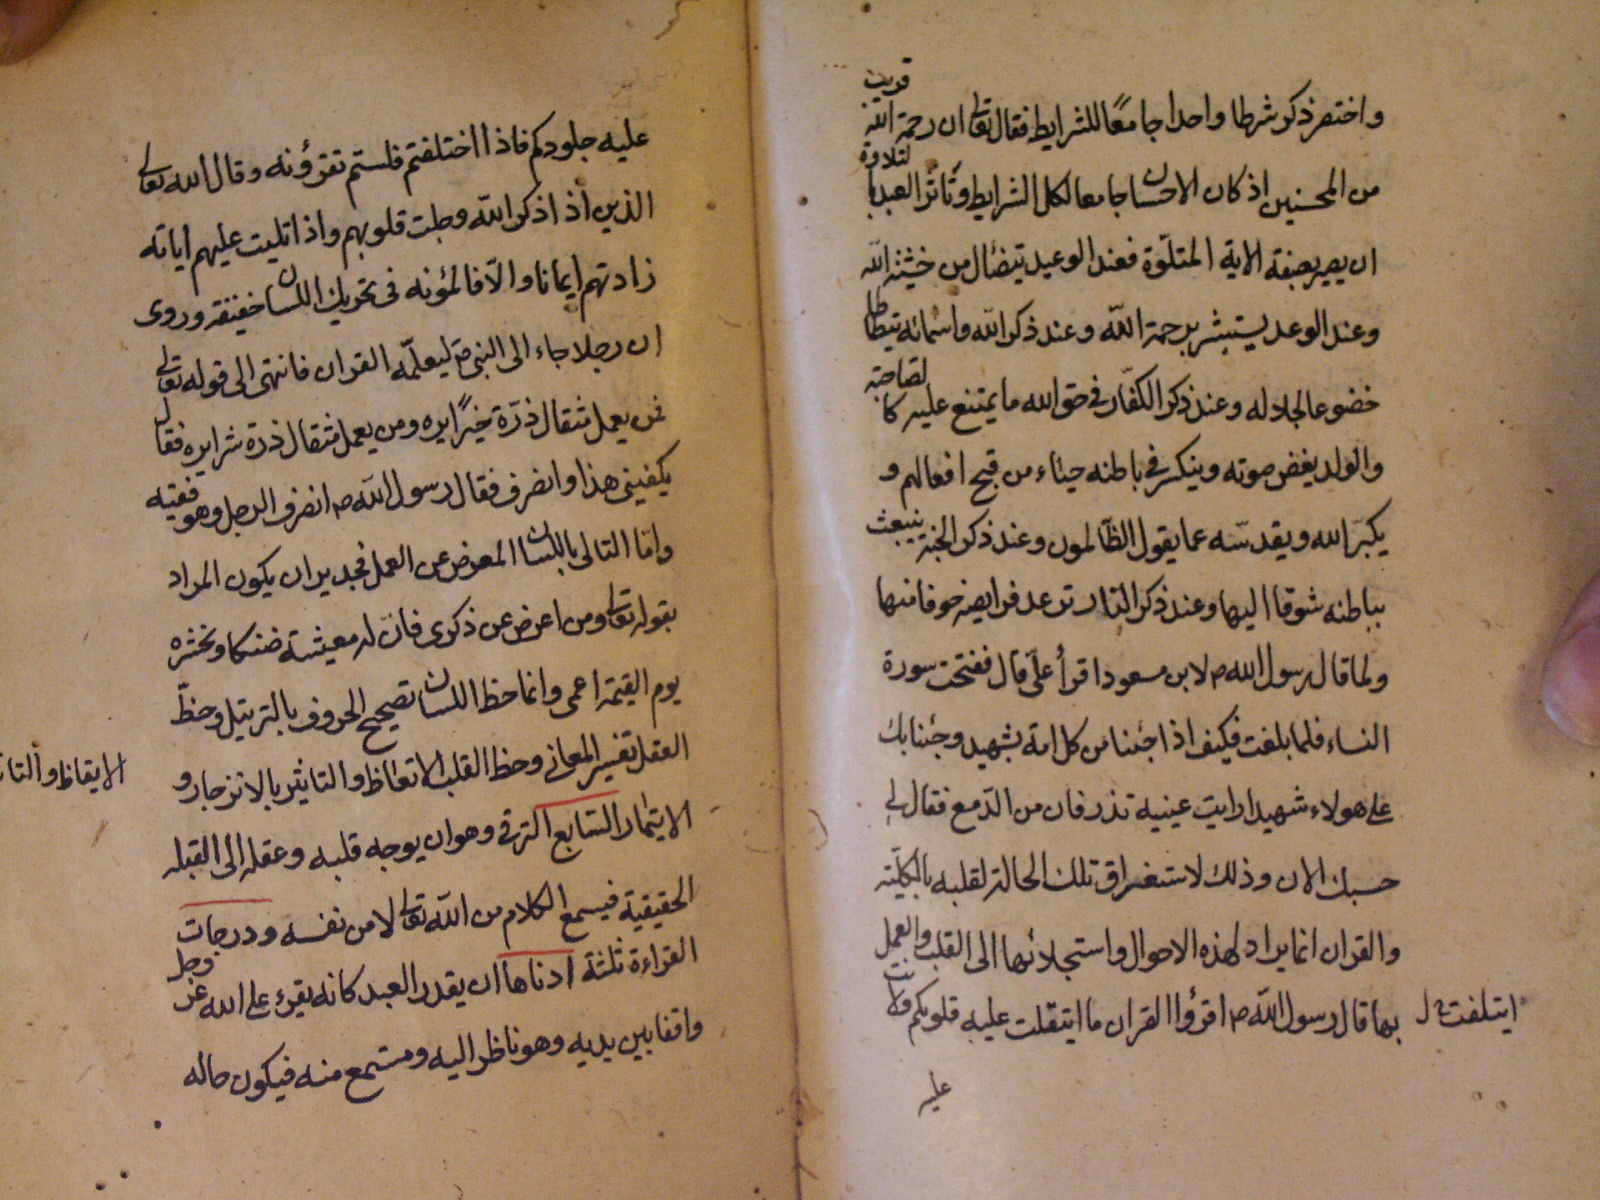 واختصر ذكر شرطا واحدا جامعًا للشرايط فقال تعالى ان رحمة الله قريب
من المحسنين اذ كان الاحسان جامعا لكل الشرايط وتأثر العبد بالتلاوة
ان يصير بصفة الاية المتلوّة فعند الوعيد يتضأل من خشية الله
وعند الوعد يستبشر برحمة الله وعند ذكر الله واسمائه يتطاطا
خضوعا لجلاله وعند ذكر الكفّار في حق الله ما يمتنع عليه كالصاحبة
والولد يغض صوته وينكسر في باطنه حياء من قبح افعالهم و
يكبّر الله ويقدسّه عما يقول الظالمون وعند ذكر الجنة ينبعث
بباطنه شوقا اليها وعند ذكر النار ترعد فرايصه خوفا منها
ولما قال رسول الله ص لابن مسعود اقرأ علىّ قال ففتحت سورة
النساء فلما بلغت فكيف اذا جئنا من كل امة بشهيد وجئنا بك
على هولاء شهيدا رايت عينيه تذرفان من الدّمع فقال لي
حسبك الان وذلك لاستغراق تلك الحالة لقلبه بالكليّة
والقران انما يراد لهذه الاحوال واستجلائها الى القلب والعمل
بها قال رسول الله ص اقرؤا القران ما ايتفلت عليه قلوبكم ولانت
ايتلفت ل
عليه
عليه جلودكم فاذا اختلفتم فلستم تقرؤنه وقال الله تعالى
الذين اذا ذكر الله وجلت قلوبهم واذا تليت عليهم اياته
زادتهم ايمانا والّا فالمؤنه في تحريك اللسان خفيفة وروى
ان رجلا جاء الى النبي ص ليعلّمه القران فانتهى الى قوله تعالى
فمن يعمل مثقال ذرّة خيرًا يره ومن يعمل مثقال ذرة شرا يره فقال
يكفيني هذا وانصرف فقال رسول الله ص انصرف الرجل وهو فقيه
وامّا التالى باللسان المعرض عن العمل فجدير ان يكون المراد
بقوله تعالى ومن اعرض عن ذكرى فانّ له معيشة ضنكا ونحشره
يوم القيمة اعمى وانما حظ اللسان تصحيح الحروف بالترتيل وحظّ
العقل تفسير المعاني وحظ القلب الاتعاظ والتاثير بالانزجار و
الايقاظ والتا
الايتمار السّابع الترقى وهو ان يوجه قلبه وعقله الى القبله
الحقيقية فيسمع الكلام من الله تعالى لا من نفسه ودرجات
القراءة ثلثة ادناها ان يقدر العبد كانه يقرء على الله عز وجل
واقفا بين يديه وهو ناظر اليه ومستمع منه فيكون حاله